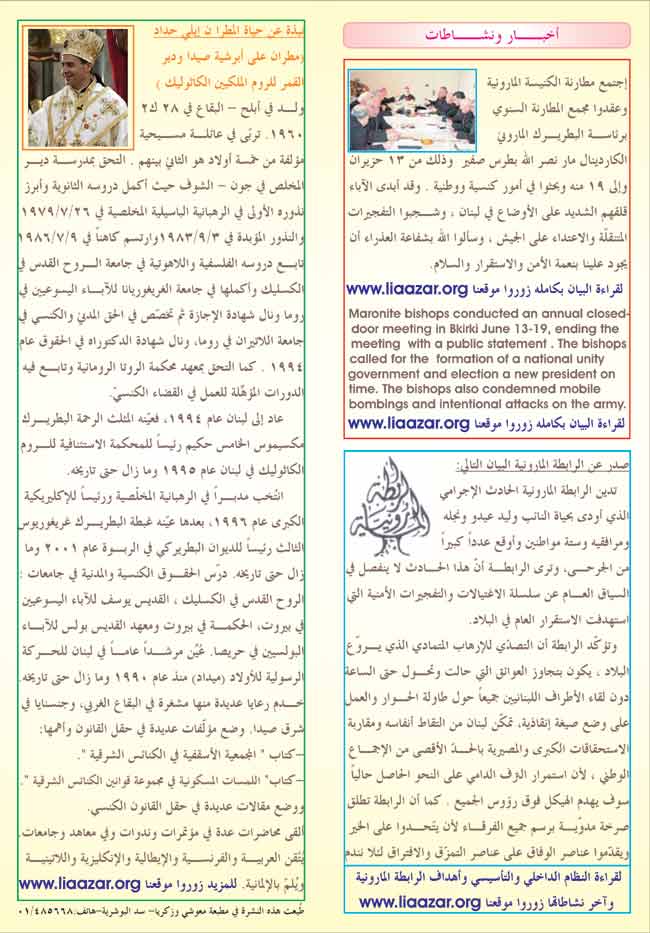 أخبـــار ونشـــاطات
إجتمع مطارنة الكنيسة المارونية
وعقدوا مجمع المطارنة السنوي
برئاسة البطريرك المارونيّ
الكاردينال مار نصر الله بطرس صفير وذلك من ١٣ حزيران
وإلى ١٩ منه وبحثوا في أمور كنسية ووطنية . وقد أبدى الآباء
قلقهم الشديد على الأوضاع في لبنان ، وشجبوا التفجيرات
المتنقلّة والاعتداء على الجيش ، وسألوا الله بشفاعة العذراء أن
يجود علينا بنعمة الأمن والاستقرار والسلام.
لقراءة البيان بكامله زوروا موقعنا www.liaazar.org
Maronite bishops conducted an annual closed-
door meeting in Bkirki June 13-19, ending the
meeting with a public statement . The bishops
called for the formation of a national unity
government and election a new president on
time. The bishops also condemned mobile
bombings and intentional attacks on the army.
لقراءة البيان بكامله زوروا موقعنا www.liaazar.org
صدر عن الرابطة المارونية البيان التالي:
الرابطة المارونية
تدين الرابطة المارونية الحادث الإجرامي
الذي أودى بحياة النائب وليد عيدو ونجله
ومرافقيه وستة مواطنين وأوقع عدداً كبيراً
من الجرحى، وترى الرابطة أنّ هذا الحادث لا ينفصل في
السياق العام عن سلسلة الاغتيالات والتفجيرات الأمنية التي
استهدفت الاستقرار العام في البلاد.
وتؤكّد الرابطة أن التصدّي للإرهاب المتمادي الذي يروّع
البلاد ، يكون بتجاوز العوائق التي حالت وتحول حتى الساعة
دون لقاء الأطراف اللبنانيين جميعاً حول طاولة الحوار والعمل
على وضع صيغة إنقاذية، تمكّن لبنان من التقاط أنفاسه ومقاربة
الاستحقاقات الكبرى والمصيرية بالحدّ الأقصى من الإجماع
الوطني ، لأن استمرار النزف الدامي على النحو الحاصل حالياً
سوف يهدم الهيكل فوق رؤوس الجميع . كما أن الرابطة تطلق
صرخة مدوّية برسم جميع الفرقاء لأن يتّحدوا على الخير
ويقدّموا عناصر الوفاق على عناصر التمزّق والافتراق لئلا نندم
لقراءة النظام الداخلي والتأسيسي وأهداف الرابطة المارونية
وآخر نشاطاتها زوروا موقعنا www.liaazar.org
نبذة عن حياة المطران إيلي حداد
(مطران على أبرشية صيدا ودير
القمر للروم الملكيين الكاثوليك )
ولد في أبلح – البقاع في ٢٨ ك٢
١٩٦٠. تربّى في عائلة مسيحية
مؤلفة من خمسة أولاد هو الثاني بينهم . التحق بمدرسة دير
المخلص في جون – الشوف حيث أكمل دروسه الثانوية وأبرز
نذوره الأولى في الرهبانية الباسيلية المخلصية في ١٩٧٩/٧/٢٦
والنذور المؤبدة في ١٩٨٣/٩/٣ وارتسم كاهناً في ١٩٨٦/٧/٩
تابع دروسه الفلسفية واللاهوتية في جامعة الروح القدس في
الكسليك وأكملها في جامعة الغريغوريانا للآباء اليسوعيين في
روما ونال شهادة الإجازة ثم تخصّص في الحق المدنيّ والكنسي في
جامعة اللاتيران في روما، ونال شهادة الدكتوراه في الحقوق عام
١٩٩٤ . كما التحق بمعهد محكمة الروتا الرومانية وتابع فيه
الدورات المؤهلّة للعمل في القضاء الكنسيّ.
عاد إلى لبنان عام ١٩٩٤، فعيّنه المثلث الرحمة البطريرك
مكسيموس الخامس حكيم رئيساً للمحكمة الاستئنافية للروم
الكاثوليك في لبنان عام ١٩٩٥ وما زال حتى تاريخه.
انتُخب مدبراً في الرهبانية المخلّصية ورئيساً للإكليريكية
الكبرى عام ١٩٩٦، بعدها عيّنه غبطة البطريرك غريغوريوس
الثالث رئيساً للديوان البطريركي في الربوة عام ٢٠٠١ وما
زال حتى تاريخه. درّس الحقوق الكنسية والمدنية في جامعات :
الروح القدس في الكسليك ، القديس يوسف للآباء اليسوعيين
في بيروت، الحكمة في بيروت ومعهد القديس بولس للآباء
البولسيين في حريصا. عُيّن مرشداً عاماً في لبنان للحركة
الرسولية للأولاد (ميداد) منذ عام ١٩٩٠ وما زال حتى تاريخه.
خدم رعايا عديدة منها مشغرة في البقاع الغربي، وجنسنايا في
شرق صيدا. وضع مؤلّفات عديدة في حقل القانون وأهمها:
–كتاب " المجمعية الأسقفية في الكنائس الشرقية ".
–كتاب" اللمسات المسكونية في مجموعة قوانين الكنائس الشرقية ".
ووضع مقالات عديدة في حقل القانون الكنسي.
ألقى محاضرات عدة في مؤتمرات وندوات وفي معاهد وجامعات.
يُتقن العربية والفرنسية والإيطالية والإنكليزية واللاتينية
ويُلمّ بالإلمانية. للمزيد زوروا موقعنا www.liaazar.org
طُبعت هذه النشرة في مطبعة معوشي وزكريا– سد البوشرية–هاتف:٠١/٤٨٥٦٦٨